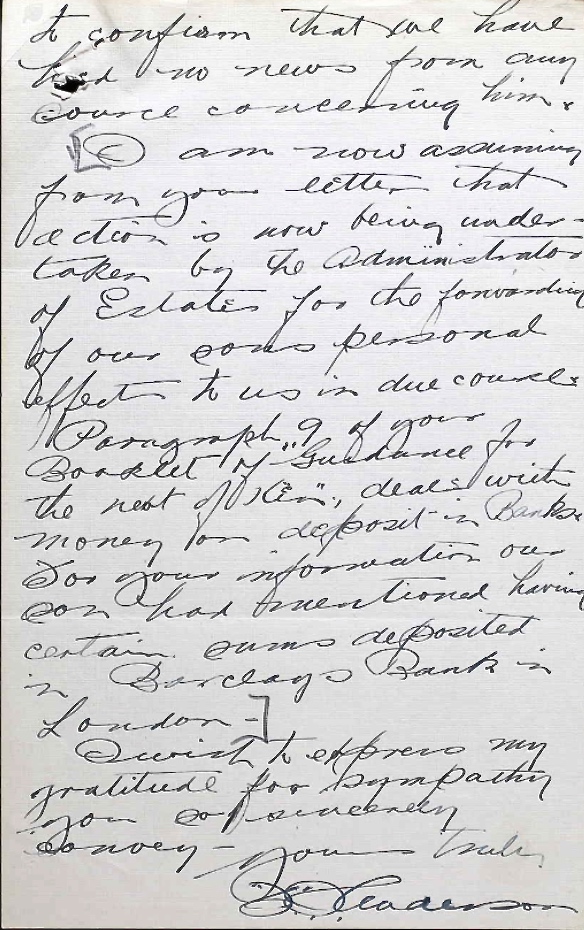 to confirm that we have
had no news from any
source concerning him.
[I am now assuming
from your letter that
action is now being under-
taken by the Administrator
of Estates for the forwarding
of our sons personal
effects to us in due course.
Paragraph "9 of your
Booklet of Guidance for
the next of Kin", deals with
money on deposit in Banks.
For your information our
son had mentioned having
certain sums deposited
in Barclays Bank in
London -]
I wish to express my
gratitude for sympathy
you so sincerely
convey - yours truly,